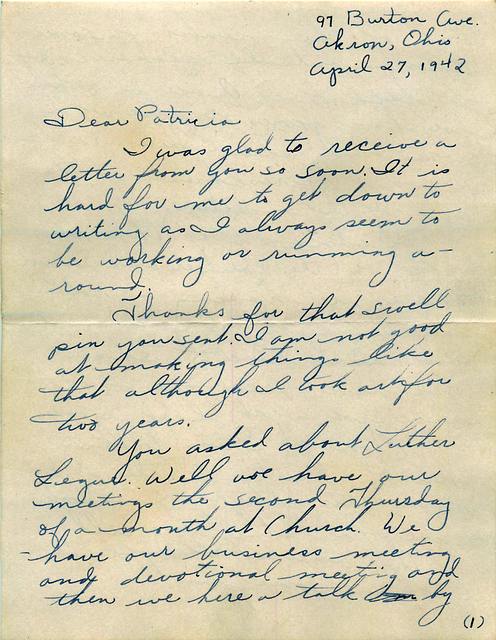 97 Burton Ave.
Akron, Ohio
April 27, 1942
Dear Patricia
I was glad to receive a
letter from you so soon. It is
hard for me to get down to
writing as I always seem to
be working or running a-
round.
Thanks for that swell
pin you sent. I am not good
at making things like
that although I took art for
two years.
You asked about Luther
Legue. Well we have our
meetings the second Thursday
of a month at Church. We
have our business meeting
and devotional meetig and
then we here a talk by
(1)